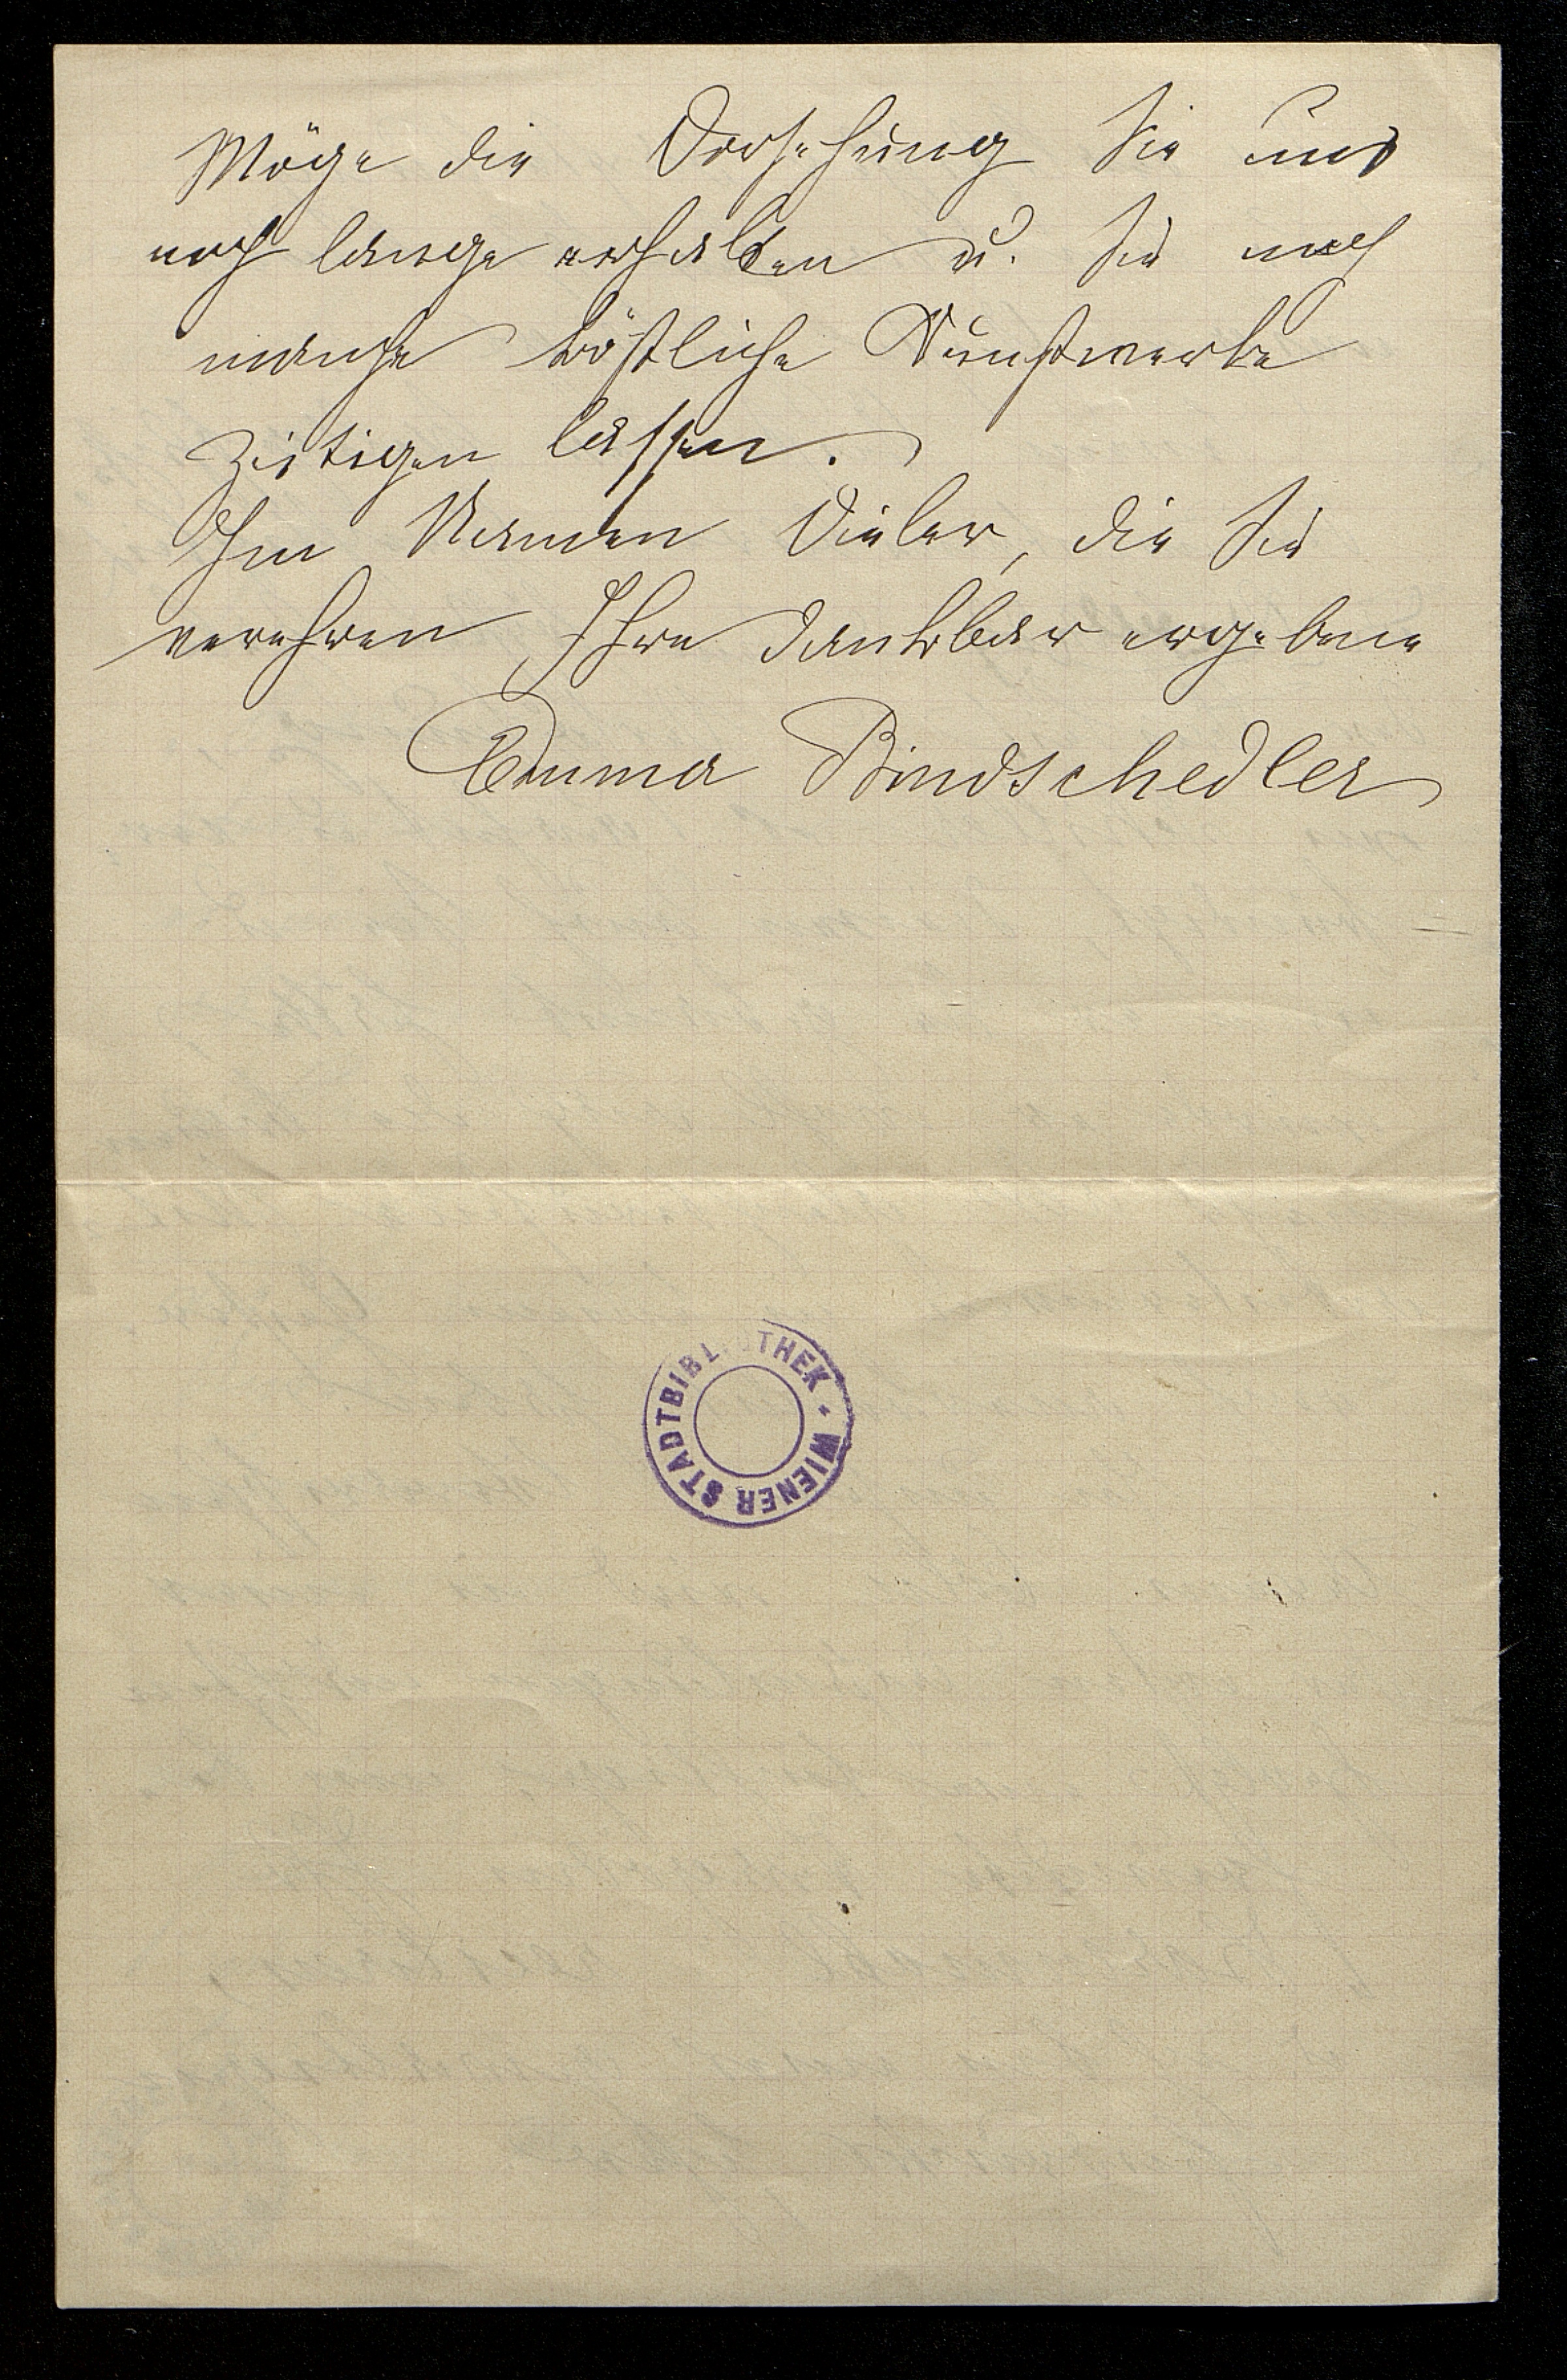 Möge die Vorsehung Sie uns
noch lange erhalten u. Sie noch
manche köstliche Kunstwerke
zeitigen lassen.
Im Namen Vieler, die Sie
verehren, Ihre dankbar ergebene
Emma Bindschedler
WIENER STADTBIBLIOTHEK